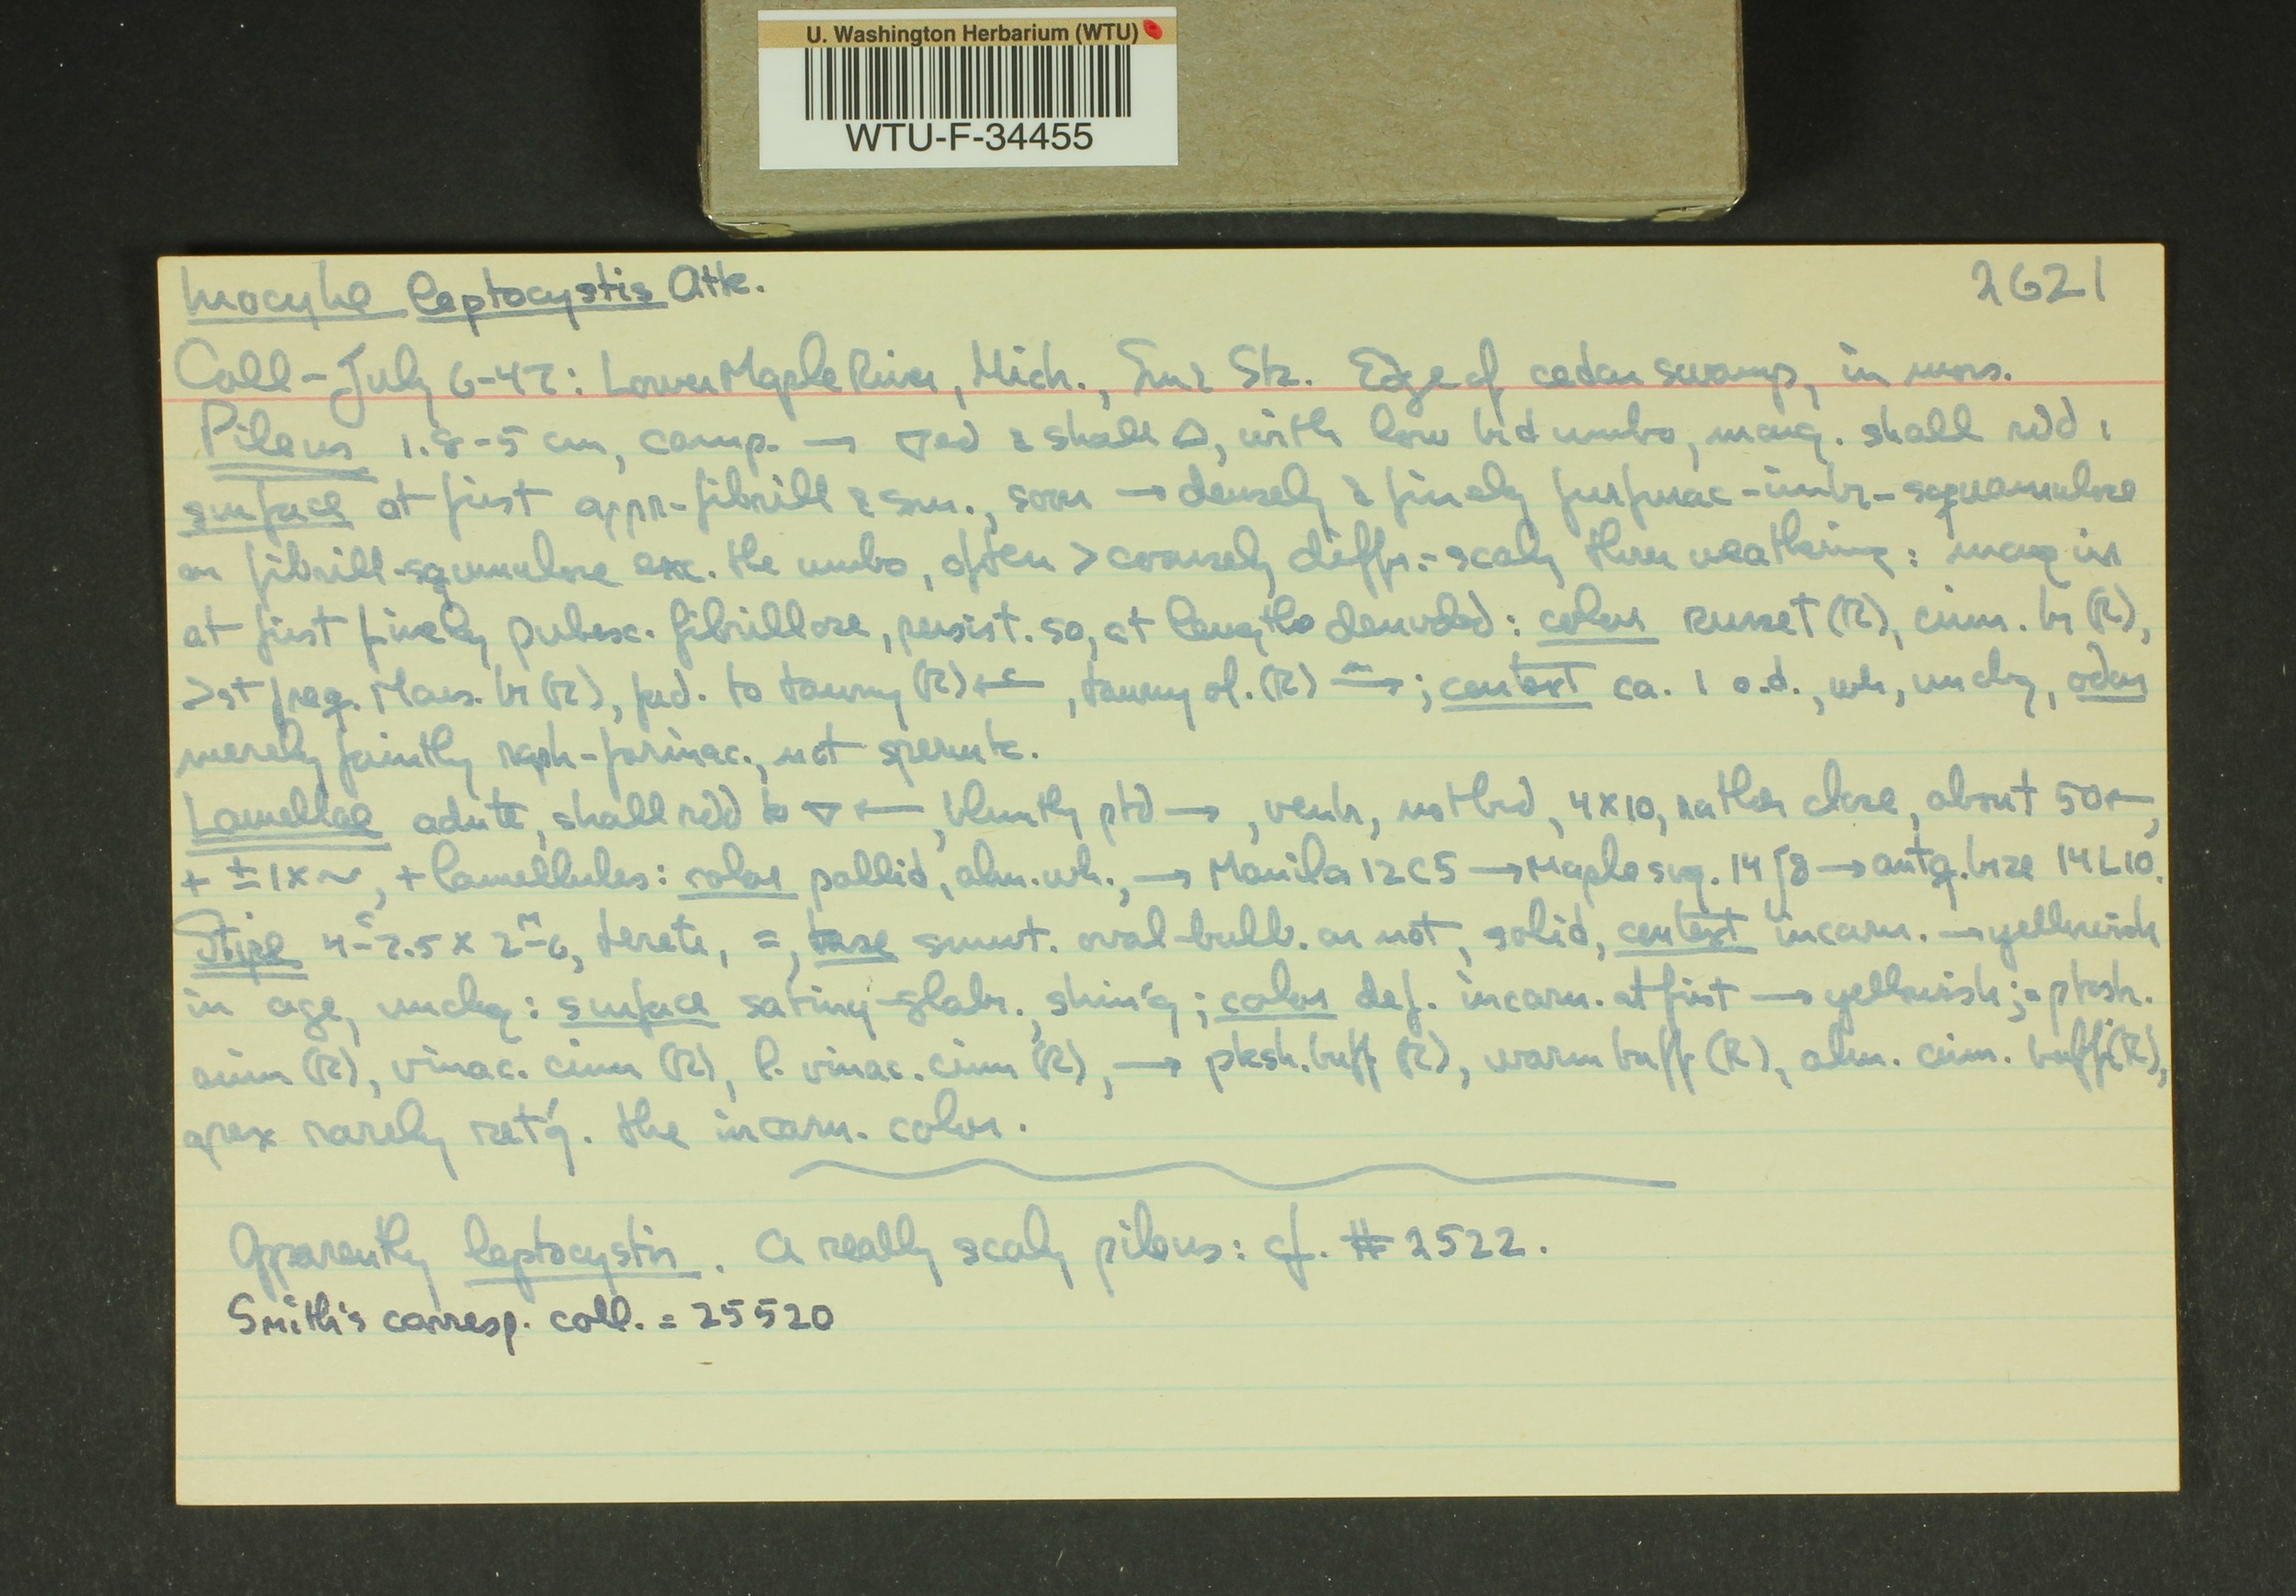 U. Washington Herbarium (WTU)
WTU-F-34455
Inocybe leptocystis Atk.
2621
Coll - July 6-47: Lower Maple River, Mich., Sm & Stz. Edge of cedar swamp, in moss.
Pileus 1.8-5 cm, camp. → & shall with low brd umbo, marg. shall rdd:
surface at first appr-fibrill & sm., soon → densely & finely furfurac-imbr-squamulose
or fibrill-squamulose exc. the umbo, often > coarsely diffr.-scaly thru weathering: marg in
at first finely pubesc. fibrillose, persist. so, at length denuded: color russet (R), cinn. br (R),
>st freq. Mars. br (R), fad. to tawny (R) ←, tawny ol. (R) →; context ca. 1 o.d., wh, unchg, odor
merely faintly raph-farinac., not spermtc.
Lamellae adnte, shall rdd to ←, bluntly ptd →, ventr, not brd, 4×10, rather close, about 50←,
+ ± 1×~, + lamellules: color pallid, alm. wh., → Manila 12C5 → Maple sug. 14J8 → antq. brze 14L10.
Stipe 4-7.5 × 2-6, terete, =, base smwt. oval-bulb. or not, solid, context incarn. → yellowish
in age, unchg: surface satiny-glabr., shin'g; color def. incarn. at first → yellowish; = pksh.
cinn (R), vinac. cinn (R), l. vinac. cinn (R), → pksh. buff (R), warm buff (R), alm. cinn. buff (R),
apex rarely ret'g. the incarn. color.
Apparently leptocystis. A really scaly pileus: cf. # 2522.
Smith's corresp. coll. = 25520